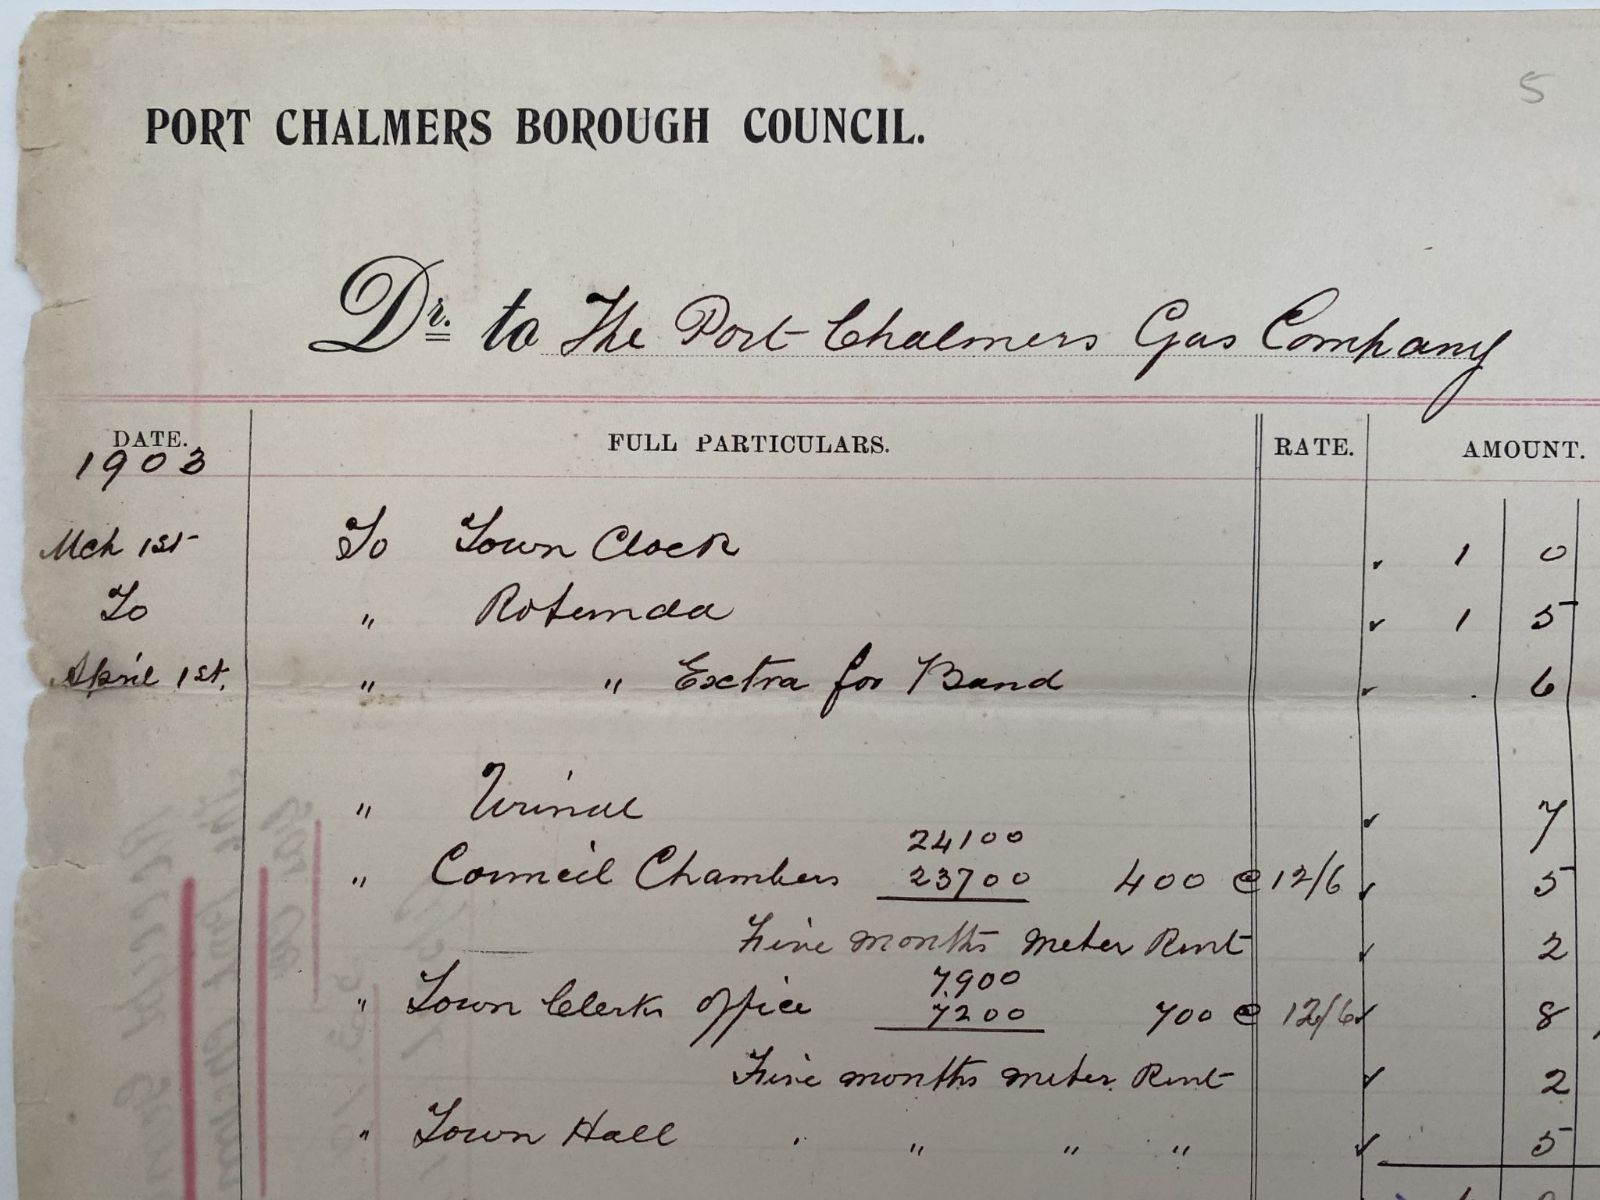 5
PORT CHALMERS BOROUGH COUNCIL.
Dr. to The Port Chalmers Gas Company
DATE. FULL PARTICULARS. RATE. AMOUNT.
1903
Mch 1st To Town Clock 1 0
To " Rotunda 1 5
April 1st. " " Extra for Band . 6
" Urinal 7
24100
" Council Chambers 23700 400 @ 12/6 5
Five months meter Rent 2
7900
" Town Clerks office 7200 700 @ 12/6 8
Five months meter Rent 2
" Town Hall " " " " 5